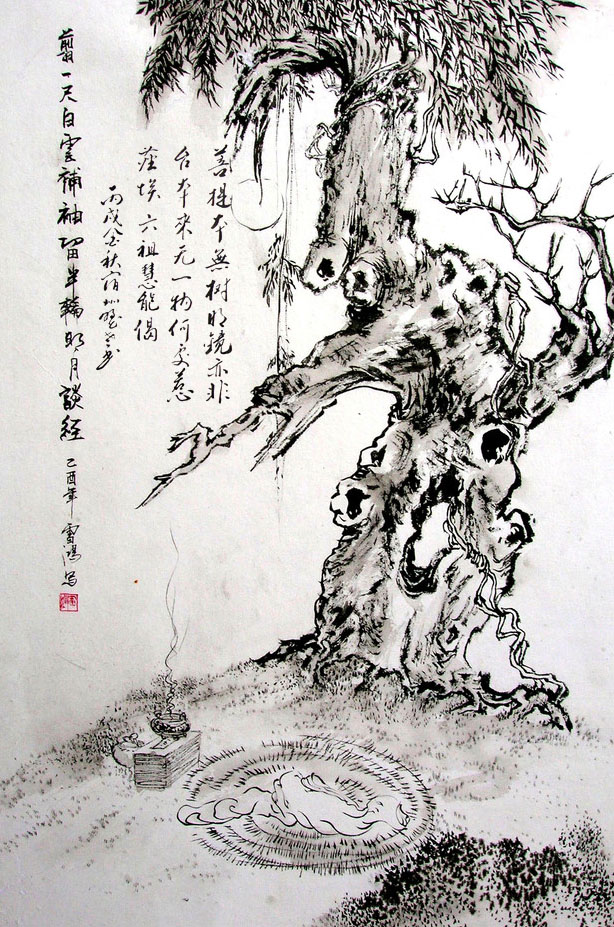 菩提本無树明鏡亦非
台本來无一物何处惹
塵埃 六祖慧能偈
丙戌金秋
剪一尺白雲補袖留半輪明月談經 酉年 雪鴻写